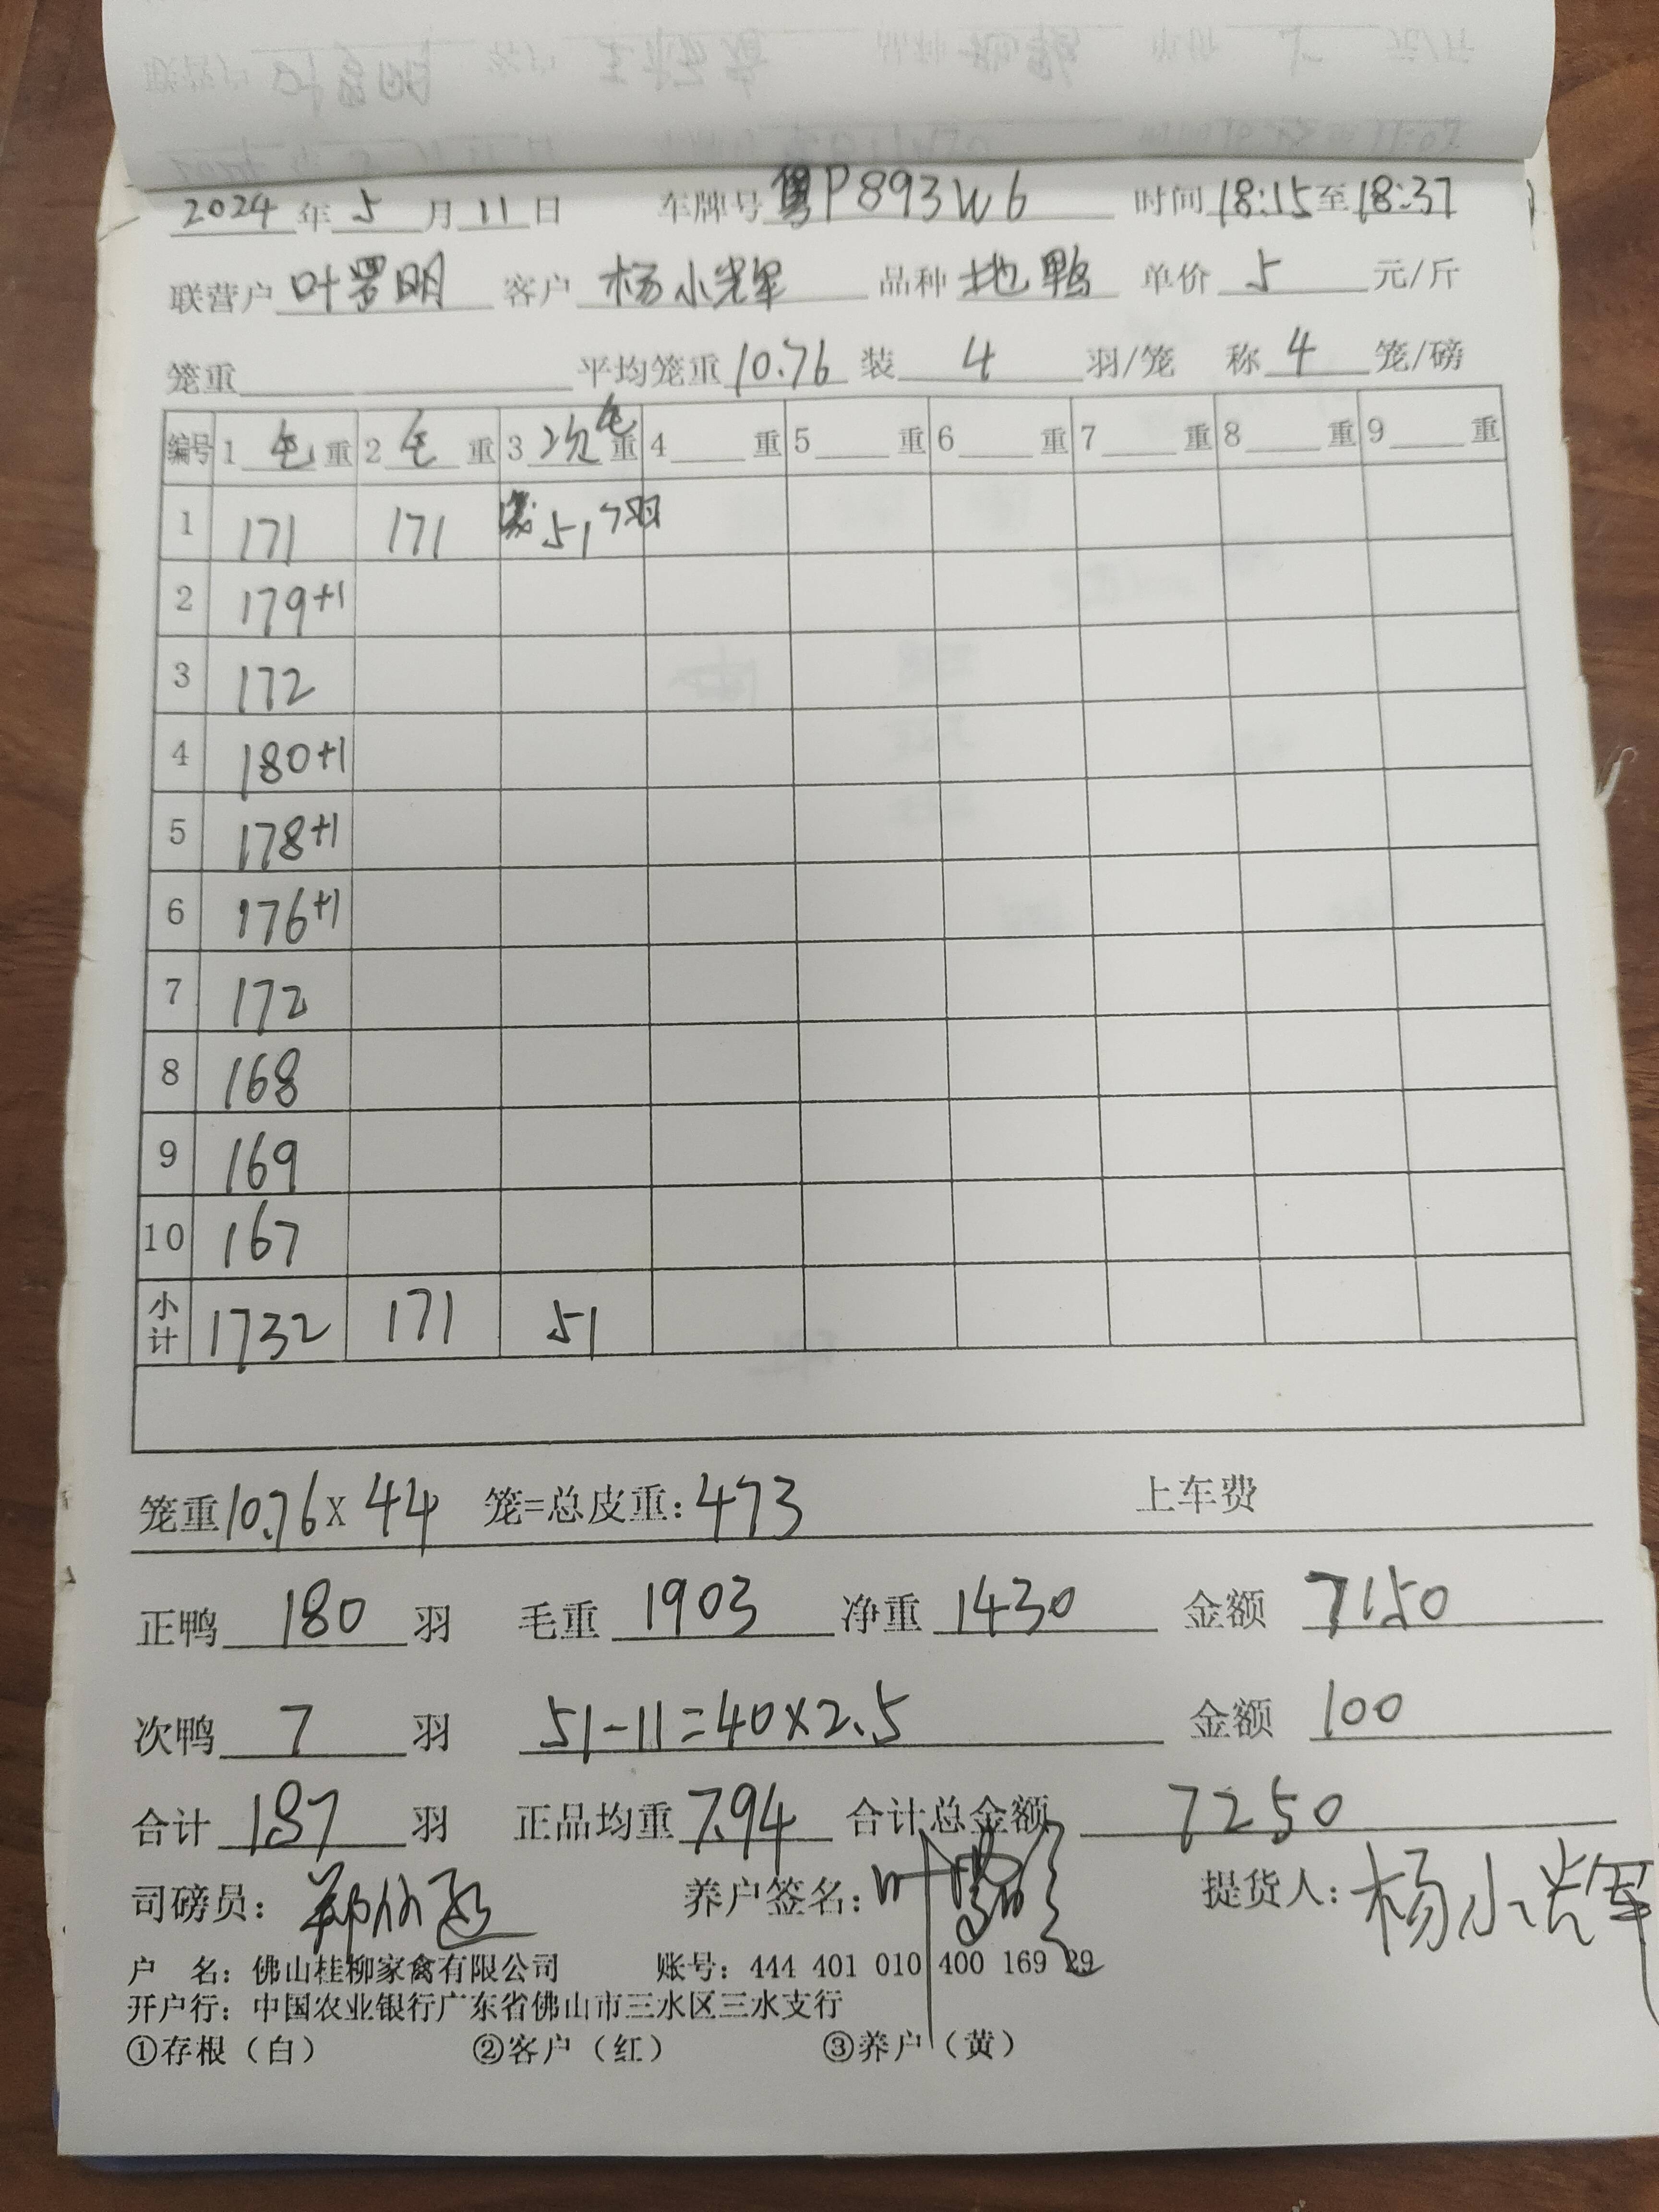 2024 年 5 月 11 日 车牌号 粤P893W6 时间 18:15 至 18:37
联营户 叶罗明 客户 杨小辉 品种 地鸭 单价 5 元/斤
笼重 平均笼重 10.76 装 4 羽/笼 称 4 笼/磅
编号 1 毛 重 2 毛 重 3 次毛 重 4 重 5 重 6 重 7 重 8 重 9 重
1 171 171 51 7羽
2 179+1
3 172
4 180+1
5 178+1
6 176+1
7 172
8 168
9 169
10 167
小计 1732 171 51
笼重 10.76 X 44 笼=总皮重: 473 上车费
正鸭 180 羽 毛重 1903 净重 1430 金额 7150
次鸭 7 羽 51-11=40×2.5 金额 100
合计 187 羽 正品均重 7.94 合计总金额 7250
司磅员: 养户签名: 提货人: 杨小辉
户 名: 佛山桂柳家禽有限公司 账号: 444 401 010 400 169 29
开户行: 中国农业银行广东省佛山市三水区三水支行
①存根（白） ②客户（红） ③养户（黄）